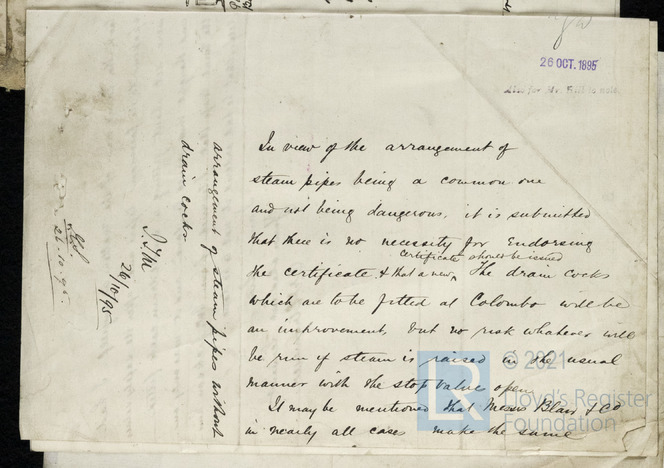 26 OCT. 1895
In view of the arrangement of
steam pipes being a common one
and not being dangerous, it is submitted
that there is no necessity for Endorsing
certificate should be issued
the certificate & that a new ^ The drain cocks
which are to be fitted at Colombo will be
an improvement, but no risk whatever will
be run if steam is raised in the usual
manner with the stop valve open
It may be mentioned that Messrs Blair & Co
in nearly all cases make the same
arrangement of steam pipes without
drain cocks
26/10/95
26.10.95.
© 2021
Lloyd's Register
Foundation
LR